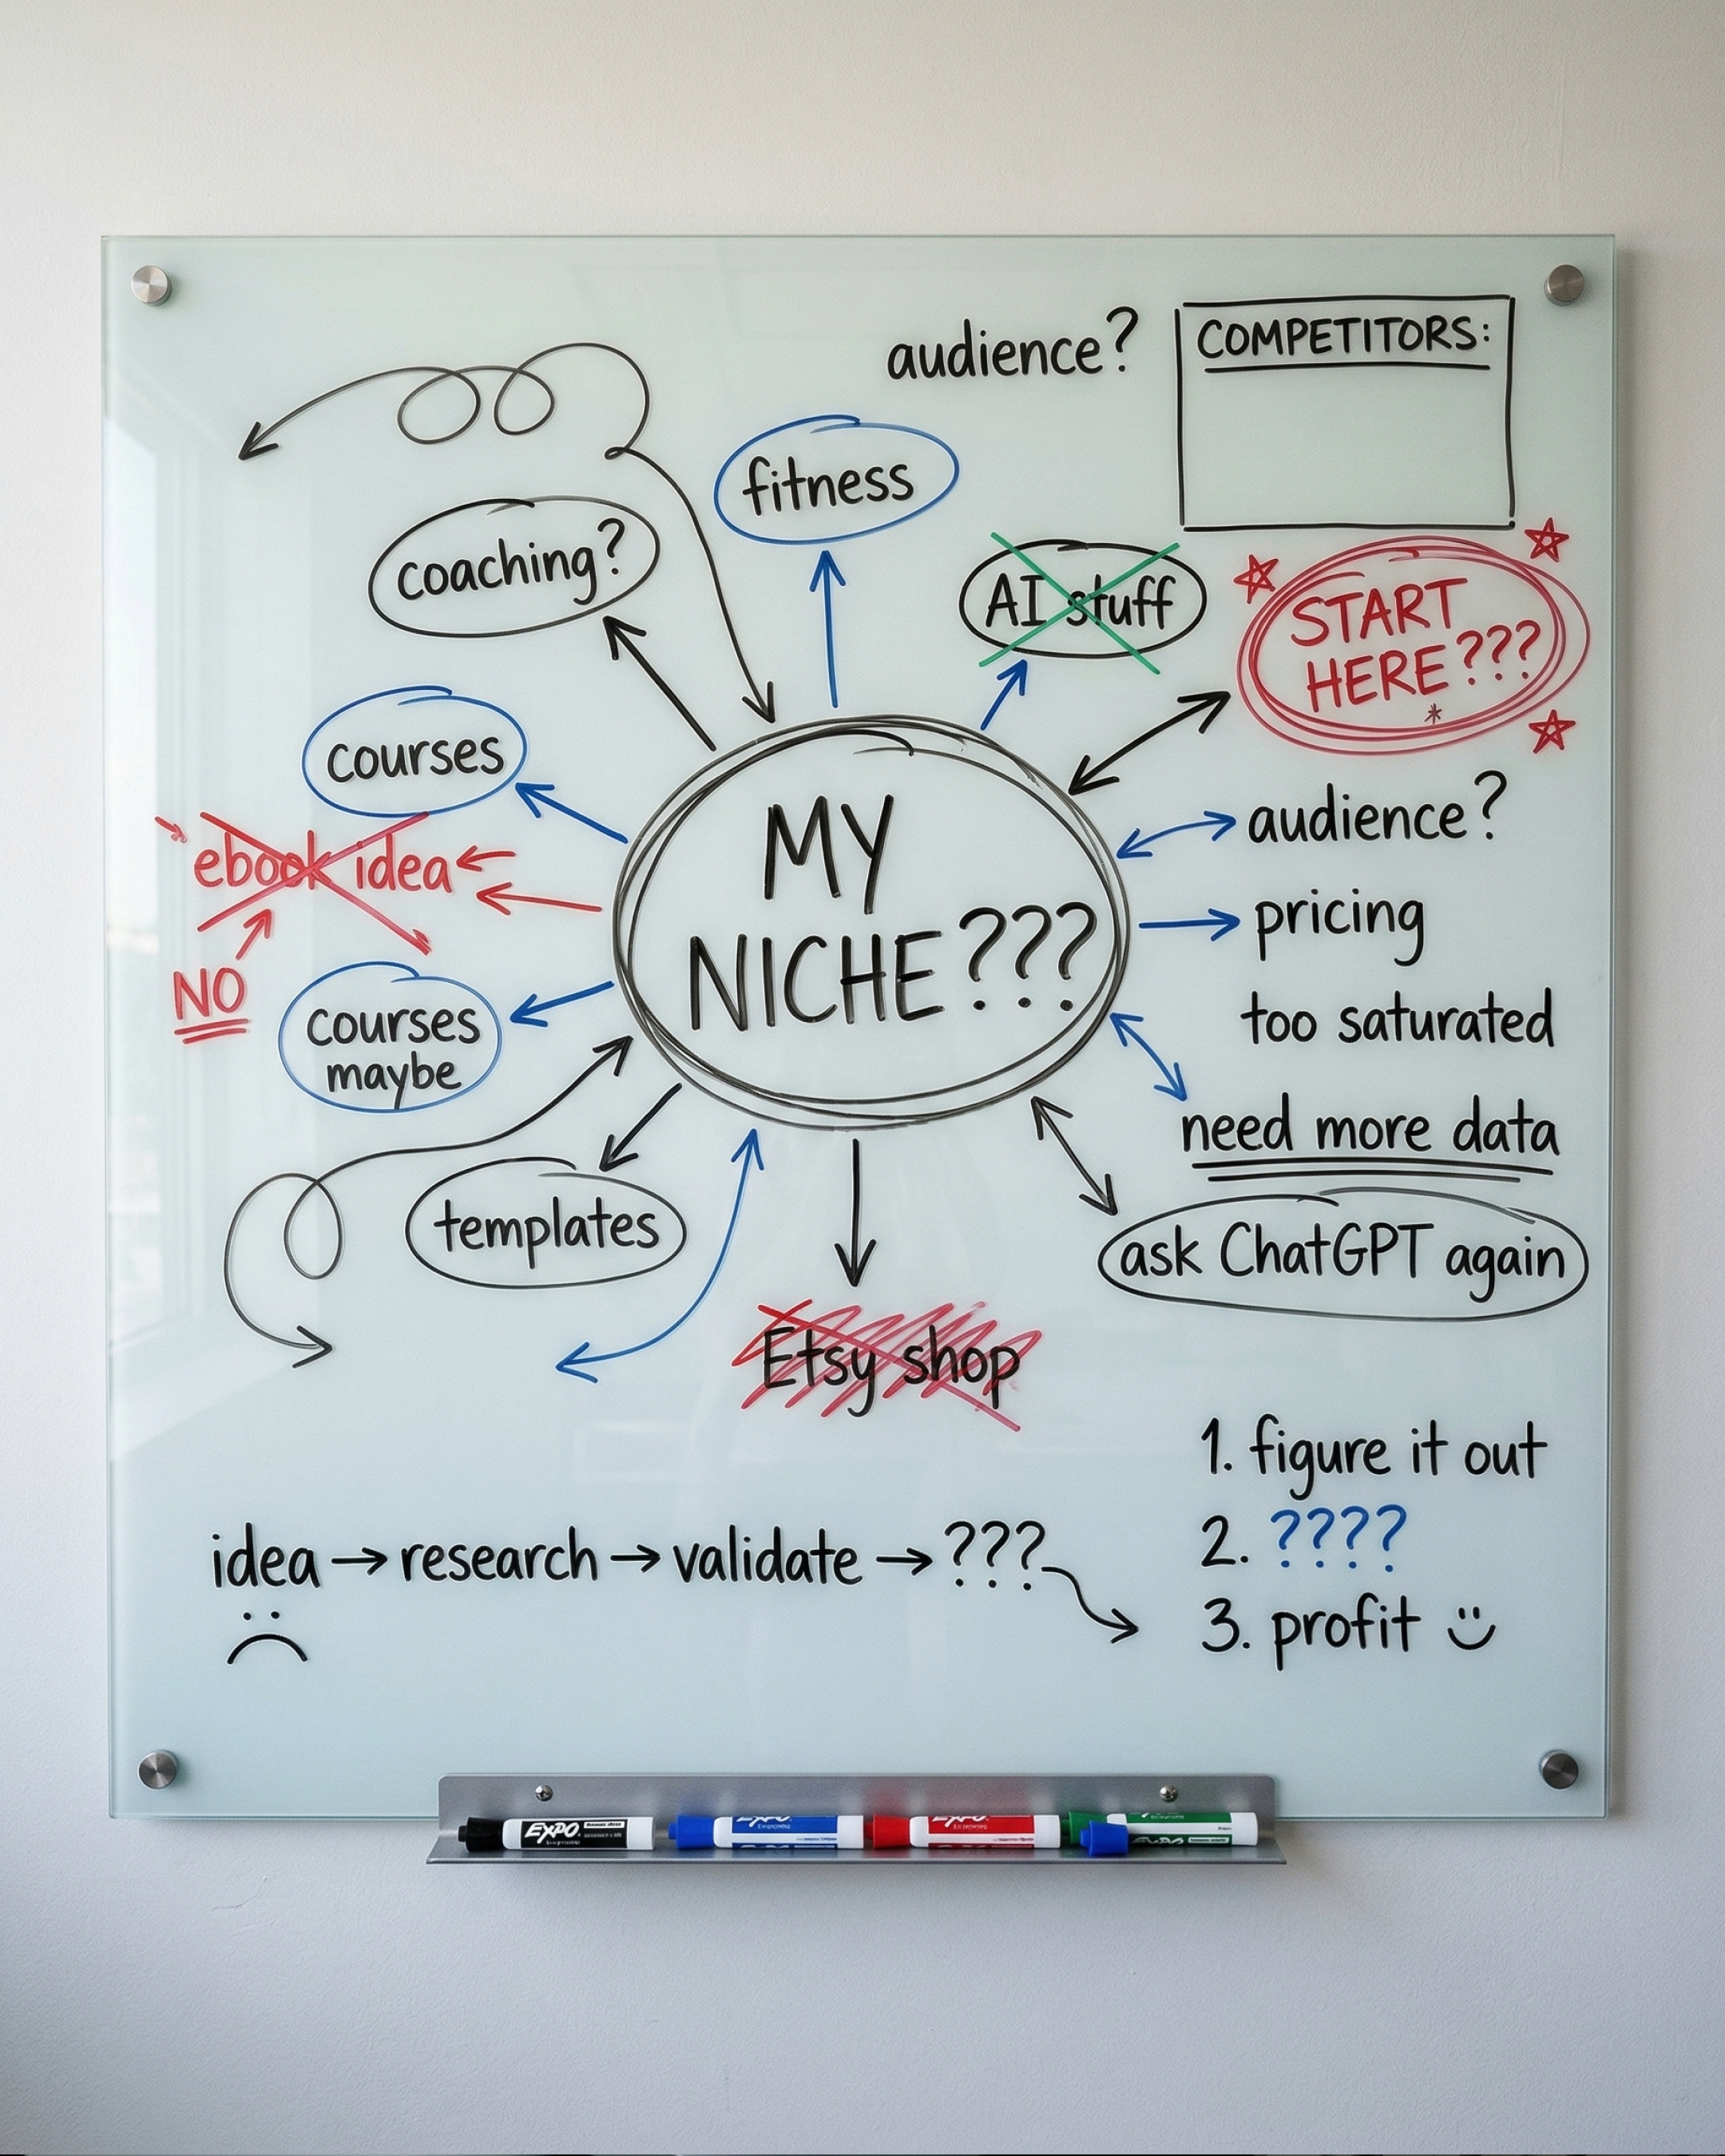 audience?
COMPETITORS:
fitness
coaching?
AI stuff
START
HERE???
*
courses
MY
NICHE???
audience?
ebook idea
pricing
NO
courses
maybe
too saturated
need more data
templates
ask ChatGPT again
Etsy shop
1. figure it out
2. ????
3. profit
idea → research → validate → ???
EXPO
EXPO
EXPO
EXPO